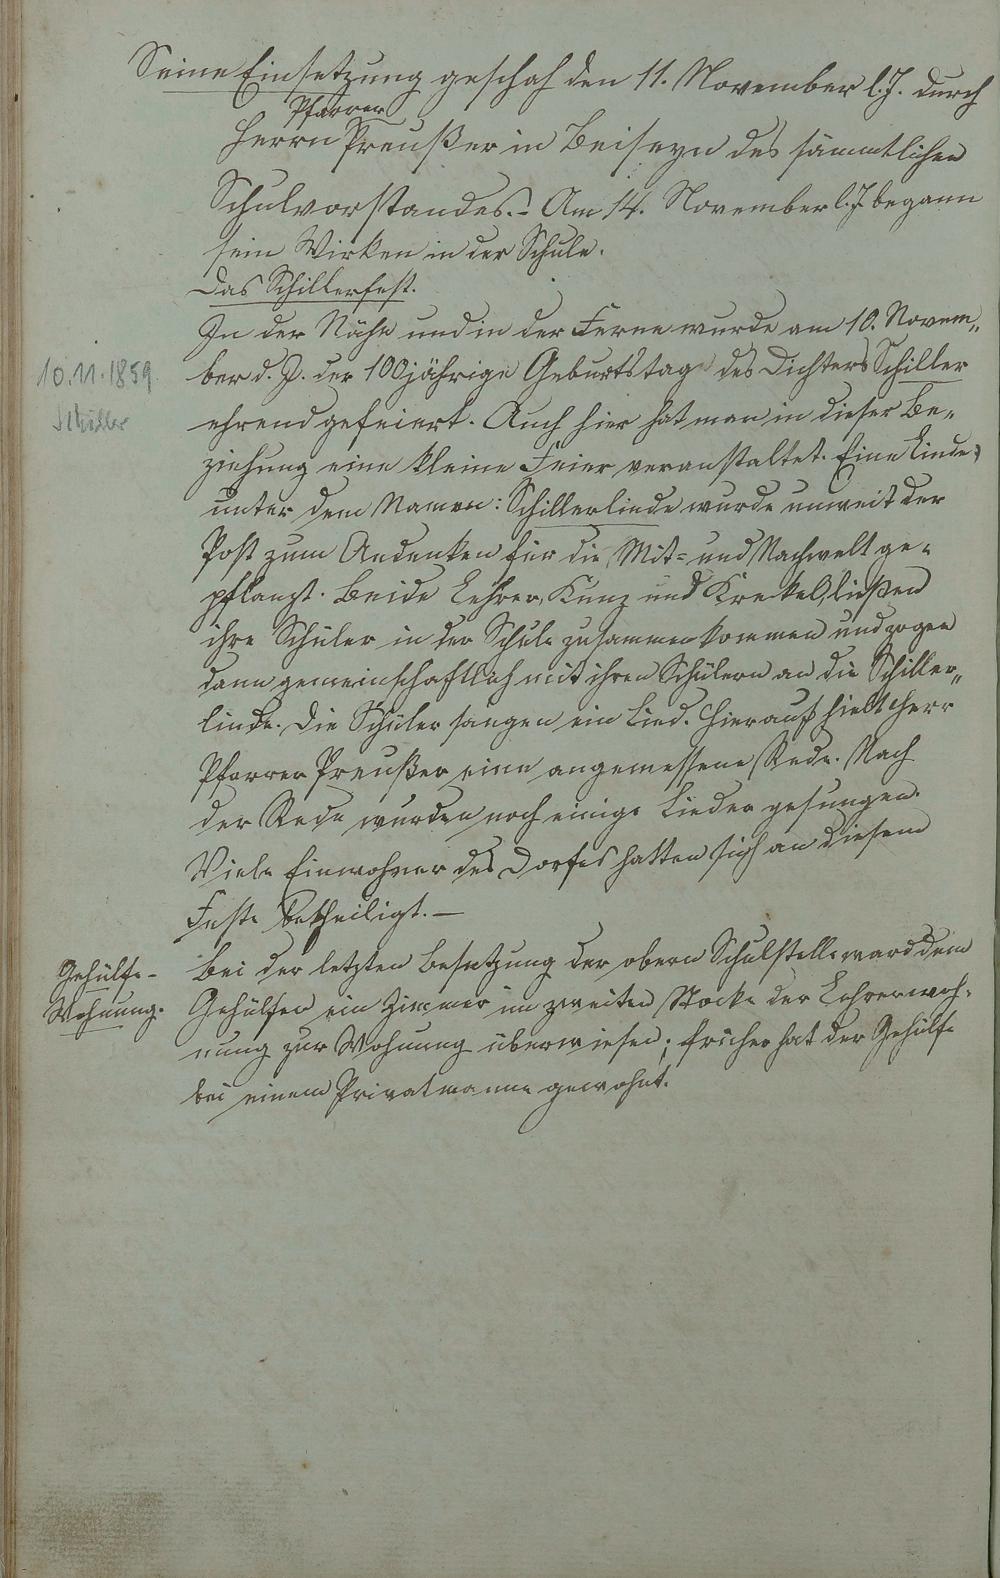 Seine Einsetzung geschah den 11. November l. J. durch
Pfarrer
Herrn Preußer in Beiseyn des sämmtlichen
Schulvorstandes. - Am 14. November l. J. begann
sein Wirken in der Schule.
Das Schillerfest.
In der Nähe und in der Ferne wurde am 10. Novem„
10.11.1859
ber d. J. der 100jährige Geburtstag des Dichters Schiller
Schiller
ehrend gefeiert. Auch hier hat man in dieser Be„
ziehung eine kleine Feier veranstaltet. Eine Linde,
unter dem Namen: Schillerlinde wurde unweit der
Post zum Andenken für die Mit= und Nachwelt ge„
pflanzt. Beide Lehrer, Kunz und Krekel, ließen
ihre Schüler in der Schule zusammenkommen und zogen
dann gemeinschaftlich mit ihren Schülern an die Schiller„
linde. Die Schüler sangen ein Lied. Hierauf hielt Herr
Pfarrer Preußer eine angemessene Rede. Nach
der Rede wurden noch einige Lieder gesungen.
Viele Einwohner des Dorfes hatten sich an diesem
Feste betheiligt. —
Gehülfe-
Wohnung.
Bei der letzten Besetzung der obern Schulstelle ward dem
Gehülfen ein Zimmer im zweiten Stocke der Lehrerwoh„
nung zur Wohnung überwiesen; früher hat der Gehülfe
bei einem Privatmanne gewohnt.